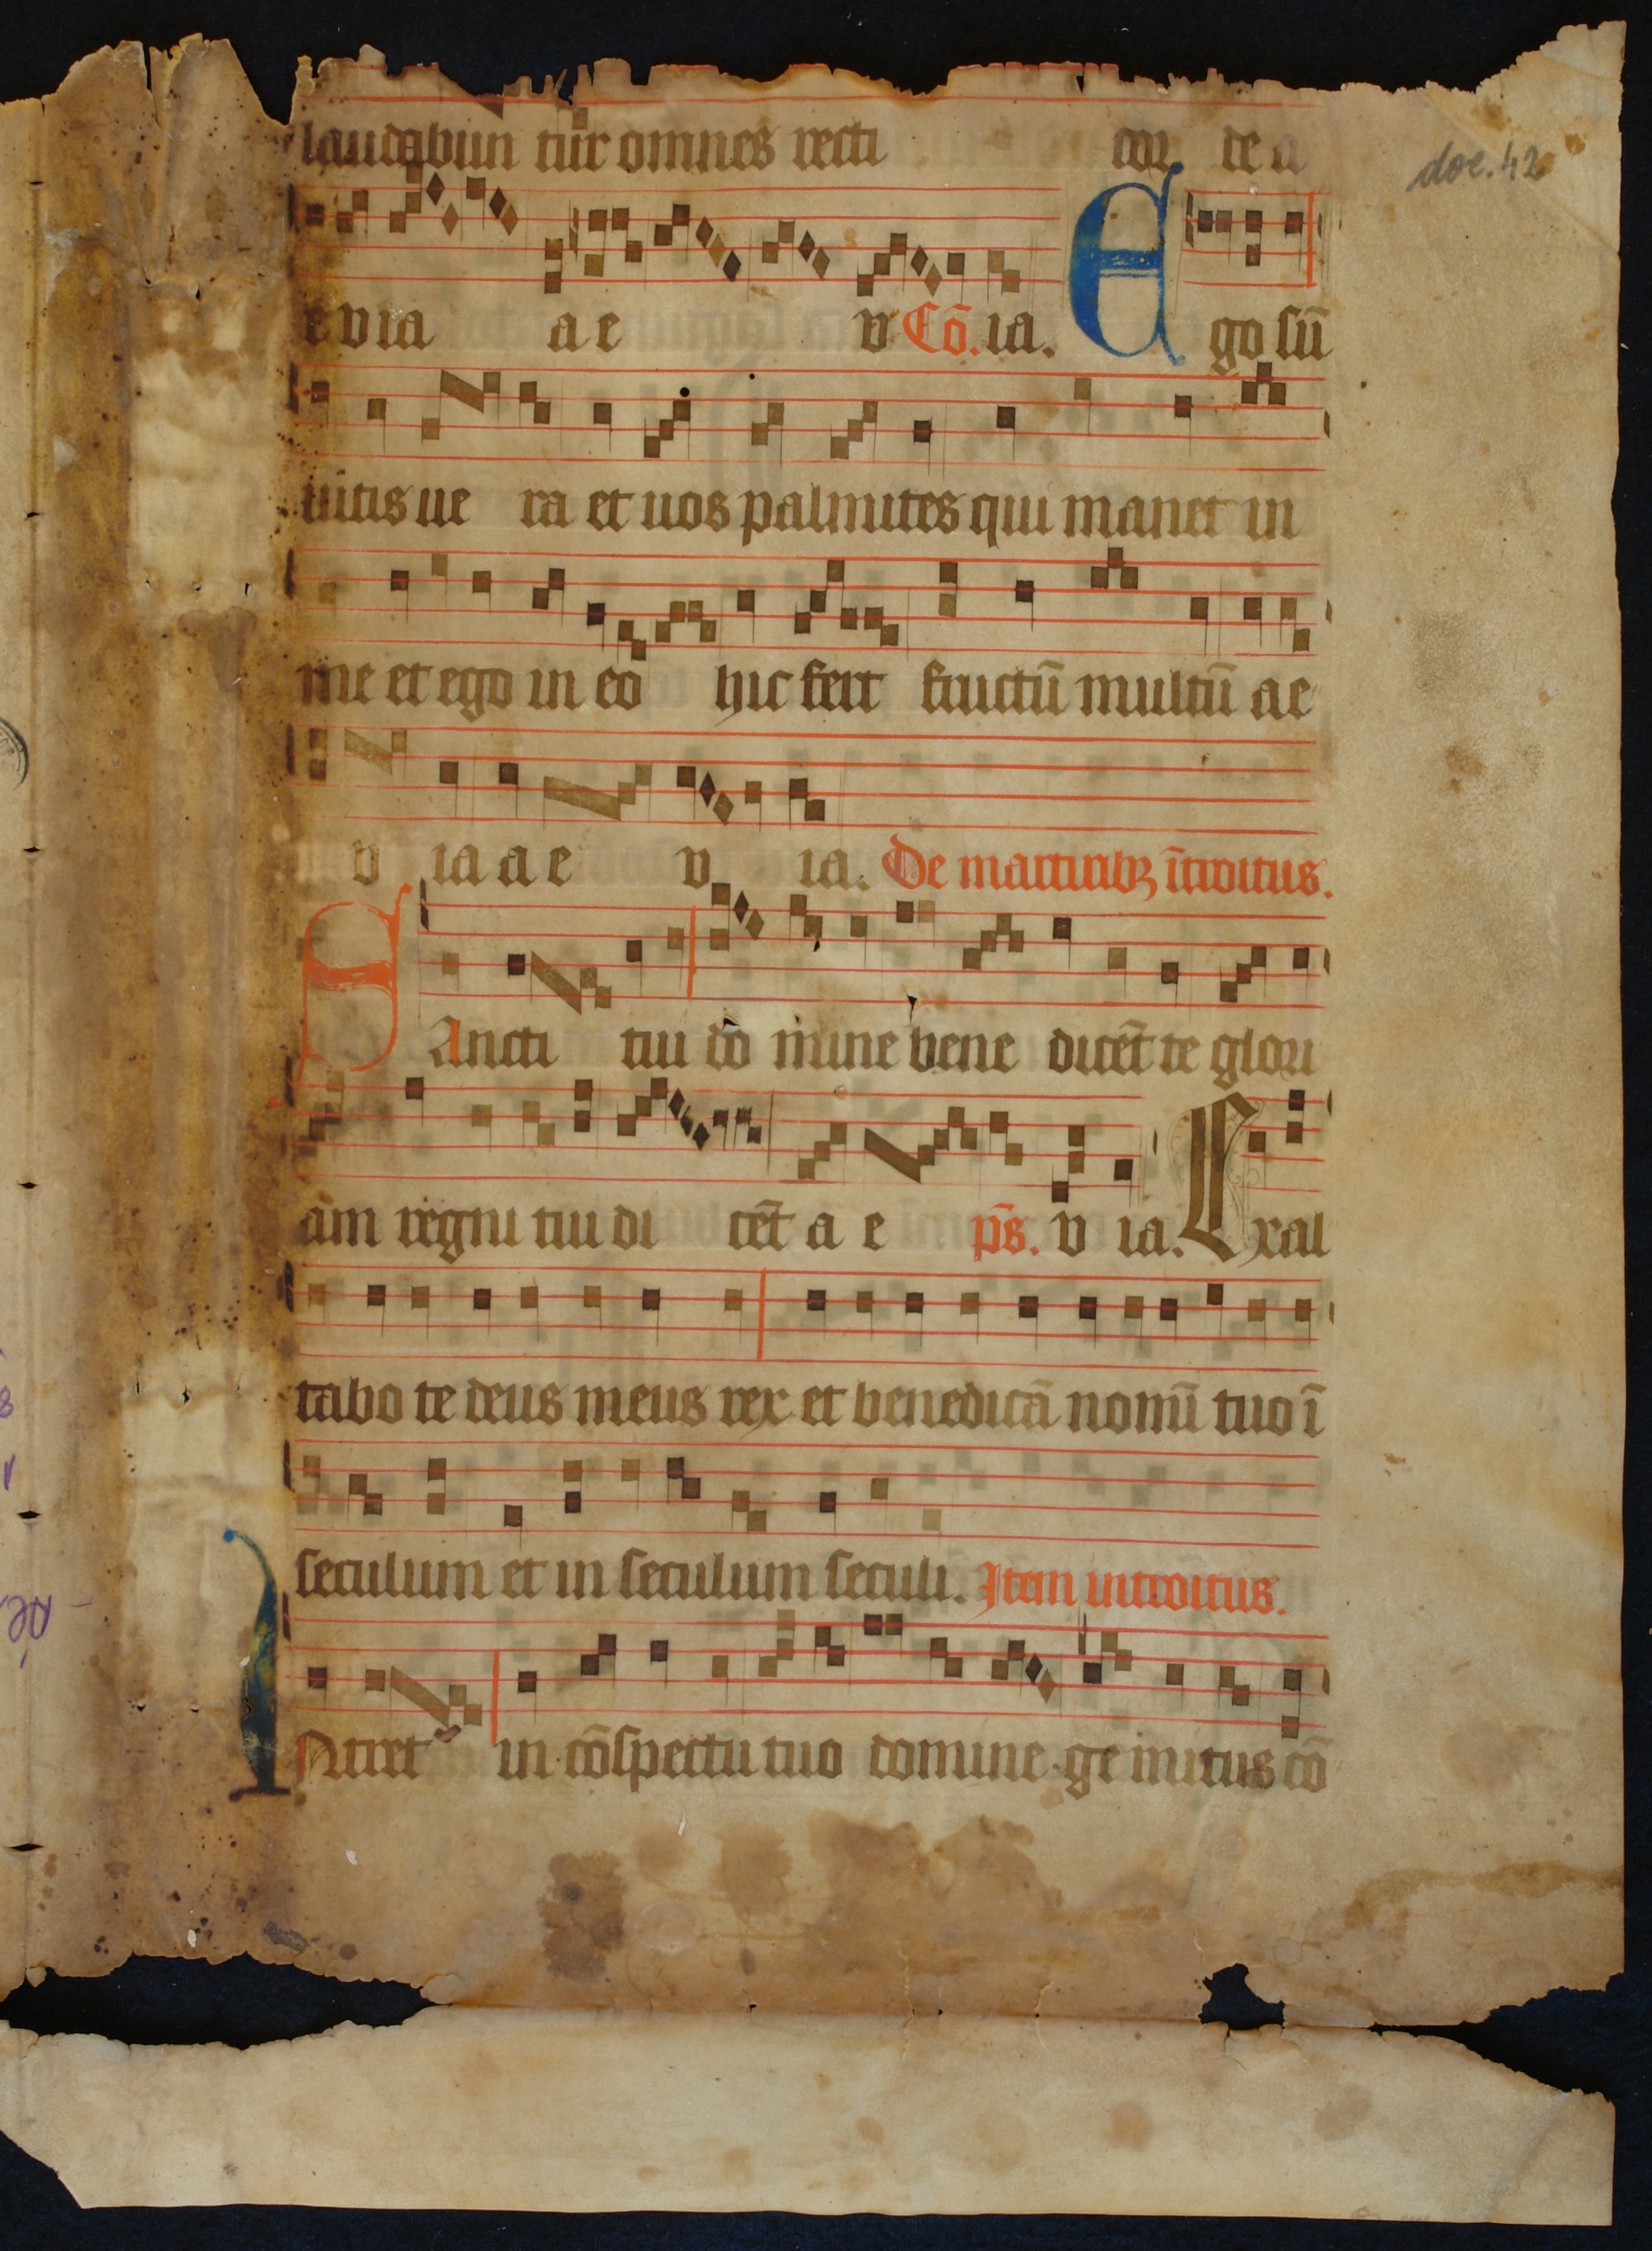 laudabun tur omnes recti cor de a
doc. 42
e v ia a e v Cō. ia. E go sū
uitis ue ra et uos palmites qui manet in
me et ego in eo hic fert fructū multū ae
v ia a e v ia. De martiribȝ ītroitus.
S Ancti tui do mine bene dicēt te glori
am regni tui di cēt a e ps̄. v ia. Exal
tabo te deus meus rex et benedicā nomī tuo ī
seculum et in seculum seculi. Item introitus.
INtret in cōspectu tuo domine gemitus cō